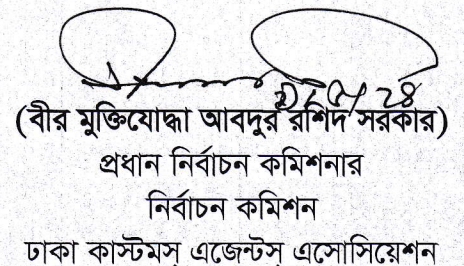 (বীর মুক্তিযোদ্ধা আবদুর রশিদ সরকার)
প্রধান নির্বাচন কমিশনার
নির্বাচন কমিশন
ঢাকা কাস্টমস্ এজেন্টস্ এসোসিয়েশন